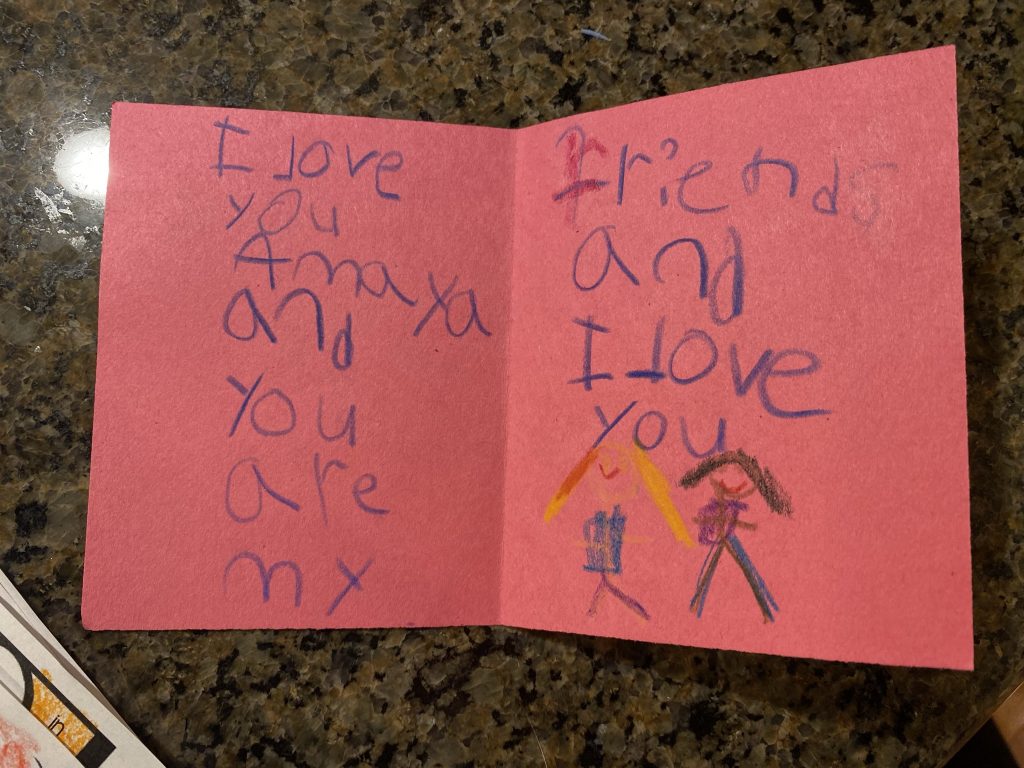 I love
you
Amaya
and
you
are
my
friends
and
I love
you
in